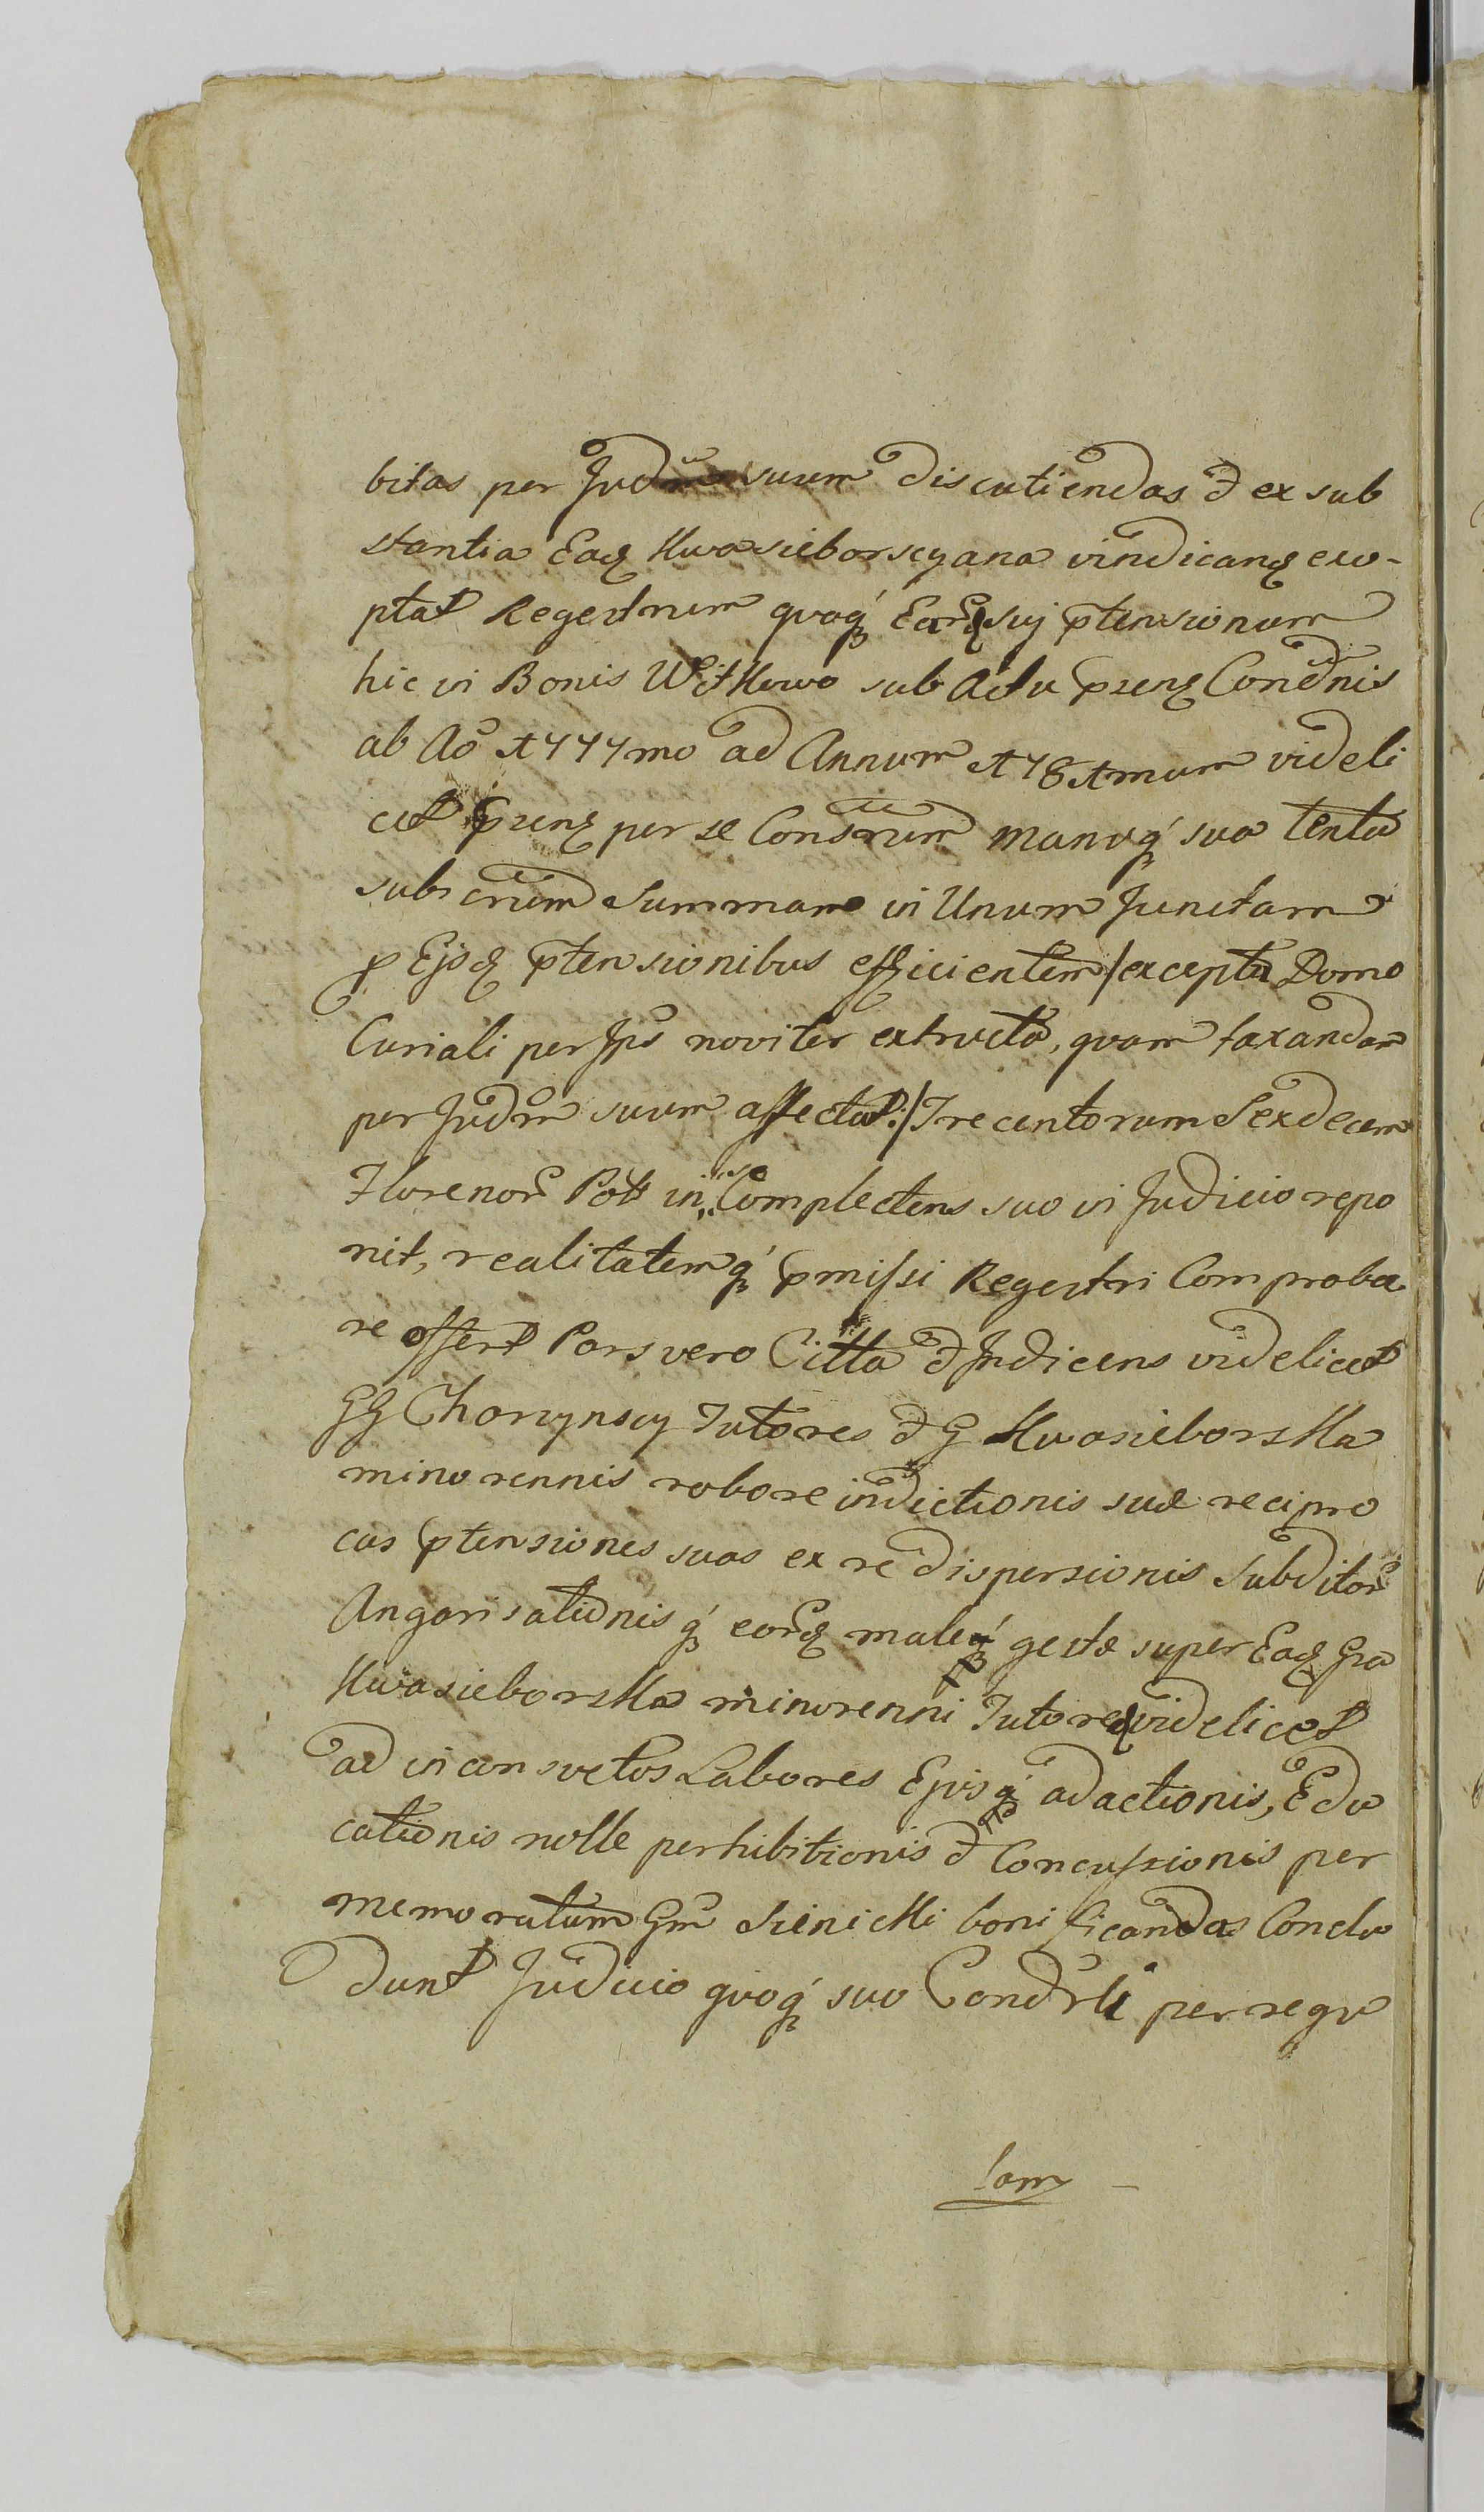 bitas per Judm suum discutiendas & ex sub
stantia Eaq Kwasieborscyana vindicanq exo-
ptat Regestrum quoq Earq suj ptensionum
hic in Bonis Witkowo sub Actu psenq Condnis
ab Ao 1777mo ad Annum 1781mum videli
cet psenq per se Consrum manuq sua tentu
subscrum Summam in Unum Junctam
p Ejsq ptensionibus efficientem/excepta Domo
Curiali per Jps noviter extructa, quam taxandam
per Judm suum affectat:/Trecentorum Sexdecem
Florenor Poll in se Complectens suo in Judicio repo
nit, realitatemq pmissi Regestri Comproba
re offert Pars vero Citta & Indicens videlicet
GG Chorynscy Tutores & G Kwasieborska
minorennis robore indictionis suæ recipro
cas ptensiones suas ex re dispersionis Subditor
Angarisationis q eorq maleq gestæ super Eaq Gsa
Kwasieborska minorenni Tutoreq videlicet
ad inconsvetos Labores Ejusq adactionis, Edu
cationis nulle perhibitionis & Concussionis per
memoratum Gm Sienicki bonificandas Conclu
dunt Judicio quoq suo Condrli per regu
lam